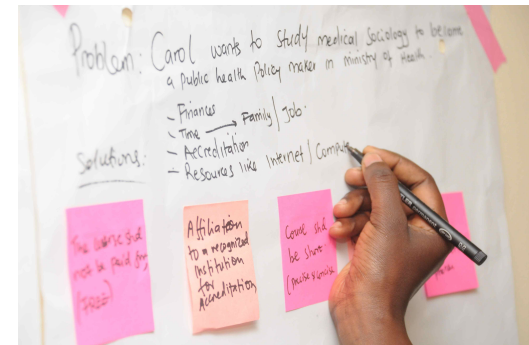 Problem: Carol wants to study medical Sociology to become
a public health Policy maker in ministry of Health.
- Finances
- Time → Family / Job.
- Accreditation
- Resources like Internet / Compute
Solutions:
The course shd
not be paid for
(FREE)
Affiliation
to a recognized
institution
for
Accreditation
Course shd
be short
(precise & concise